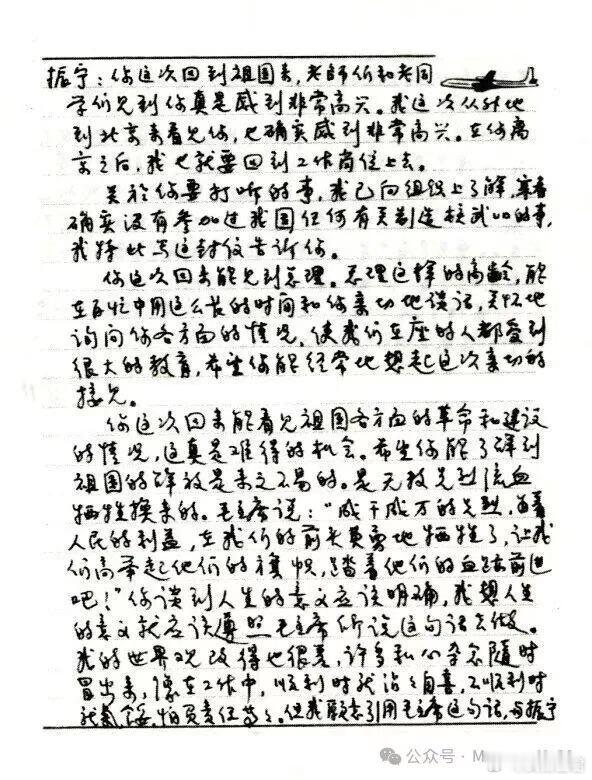 振宁：你这次回到祖国来，老師们和老同
学们见到你真是感到非常高兴。我这次从外地
到北京来看见你，也确实感到非常高兴。在你离
京之后，我也就要回到工作岗位上去。
关於你要打听的事，我已向组织上了解，寒春
确实没有参加过我国任何有关制造核武口的事，
我特此写这封信告诉你。
你这次回来能见到总理。总理这样的高龄，能
在百忙中用这么长的时间和你亲切地谈话，关怀地
询问你各方面的情况，使我们在座的人都受到
很大的教育，希望你能经常地想起这次亲切的
接见。
你这次回来能看见祖国各方面的革命和建设
的情况，这真是难得的机会。希望你能了解到
祖国的解放是来之不易的。是无数先烈流血
牺牲换来的。毛主席说：“成千成万的先烈，为着
人民的利益，在我们的前头英勇地牺牲了，让我
们高举起他们的旗帜，踏着他们的血迹前进
吧！”你谈到人生的意义应该明确，我想人生
的意义就应该遵照毛主席所说这句话去做。
我的世界观改得也很差，许多私心杂念随时
冒出来，像在工作中，顺利时就沾沾自喜，不顺利时
就气馁，怕负责任等等。但我愿意引用毛主席这句话，与振宁
公众号・M